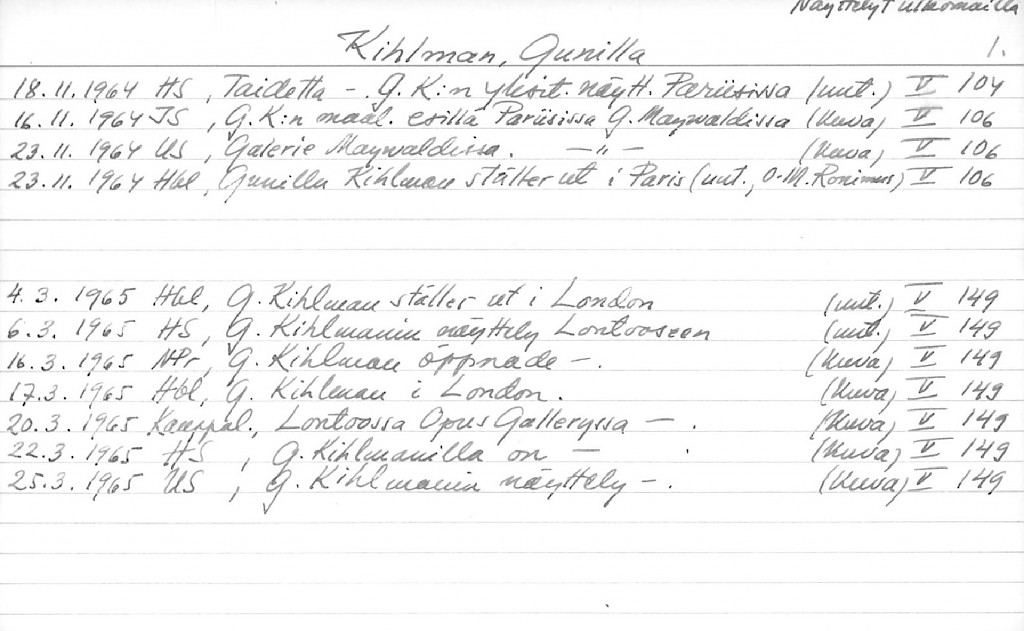 Näyttelyt ulkomailla
Kihlman, Gunilla 1.
18.11.1964 HS, Taidetta - G.K:n yksit. näytt. Pariisissa (uut.) V 104
16.11.1964 IS, G.K:n maal. esillä Pariisissa G. Maywaldissa (kuva) V 106
23.11.1964 US, Galerie Maywaldissa. -"- (kuva) V 106
23.11.1964 Hbl, Gunilla Kihlman ställer ut i Paris (uut., O-M. Ronimus) V 106
4.3.1965 Hbl, G. Kihlman ställer ut i London (uut.) V 149
6.3.1965 HS, G. Kihlmanin näyttely Lontooseen (uut.) V 149
16.3.1965 NPr, G. Kihlman öppnade -. (kuva) V 149
17.3.1965 Hbl, G. Kihlman i London. (kuva) V 149
20.3.1965 Kauppal., Lontoossa Opus Galleryssa -. (kuva) V 149
22.3.1965 HS, G. Kihlmanilla on - . (kuva) V 149
25.3.1965 US, G. Kihlmanin näyttely -. (kuva) V 149